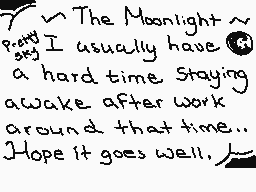 ~ The Moonlight ~
Pretty
sky
I usually have
a hard time staying
awake after work
around that time...
Hope it goes well.